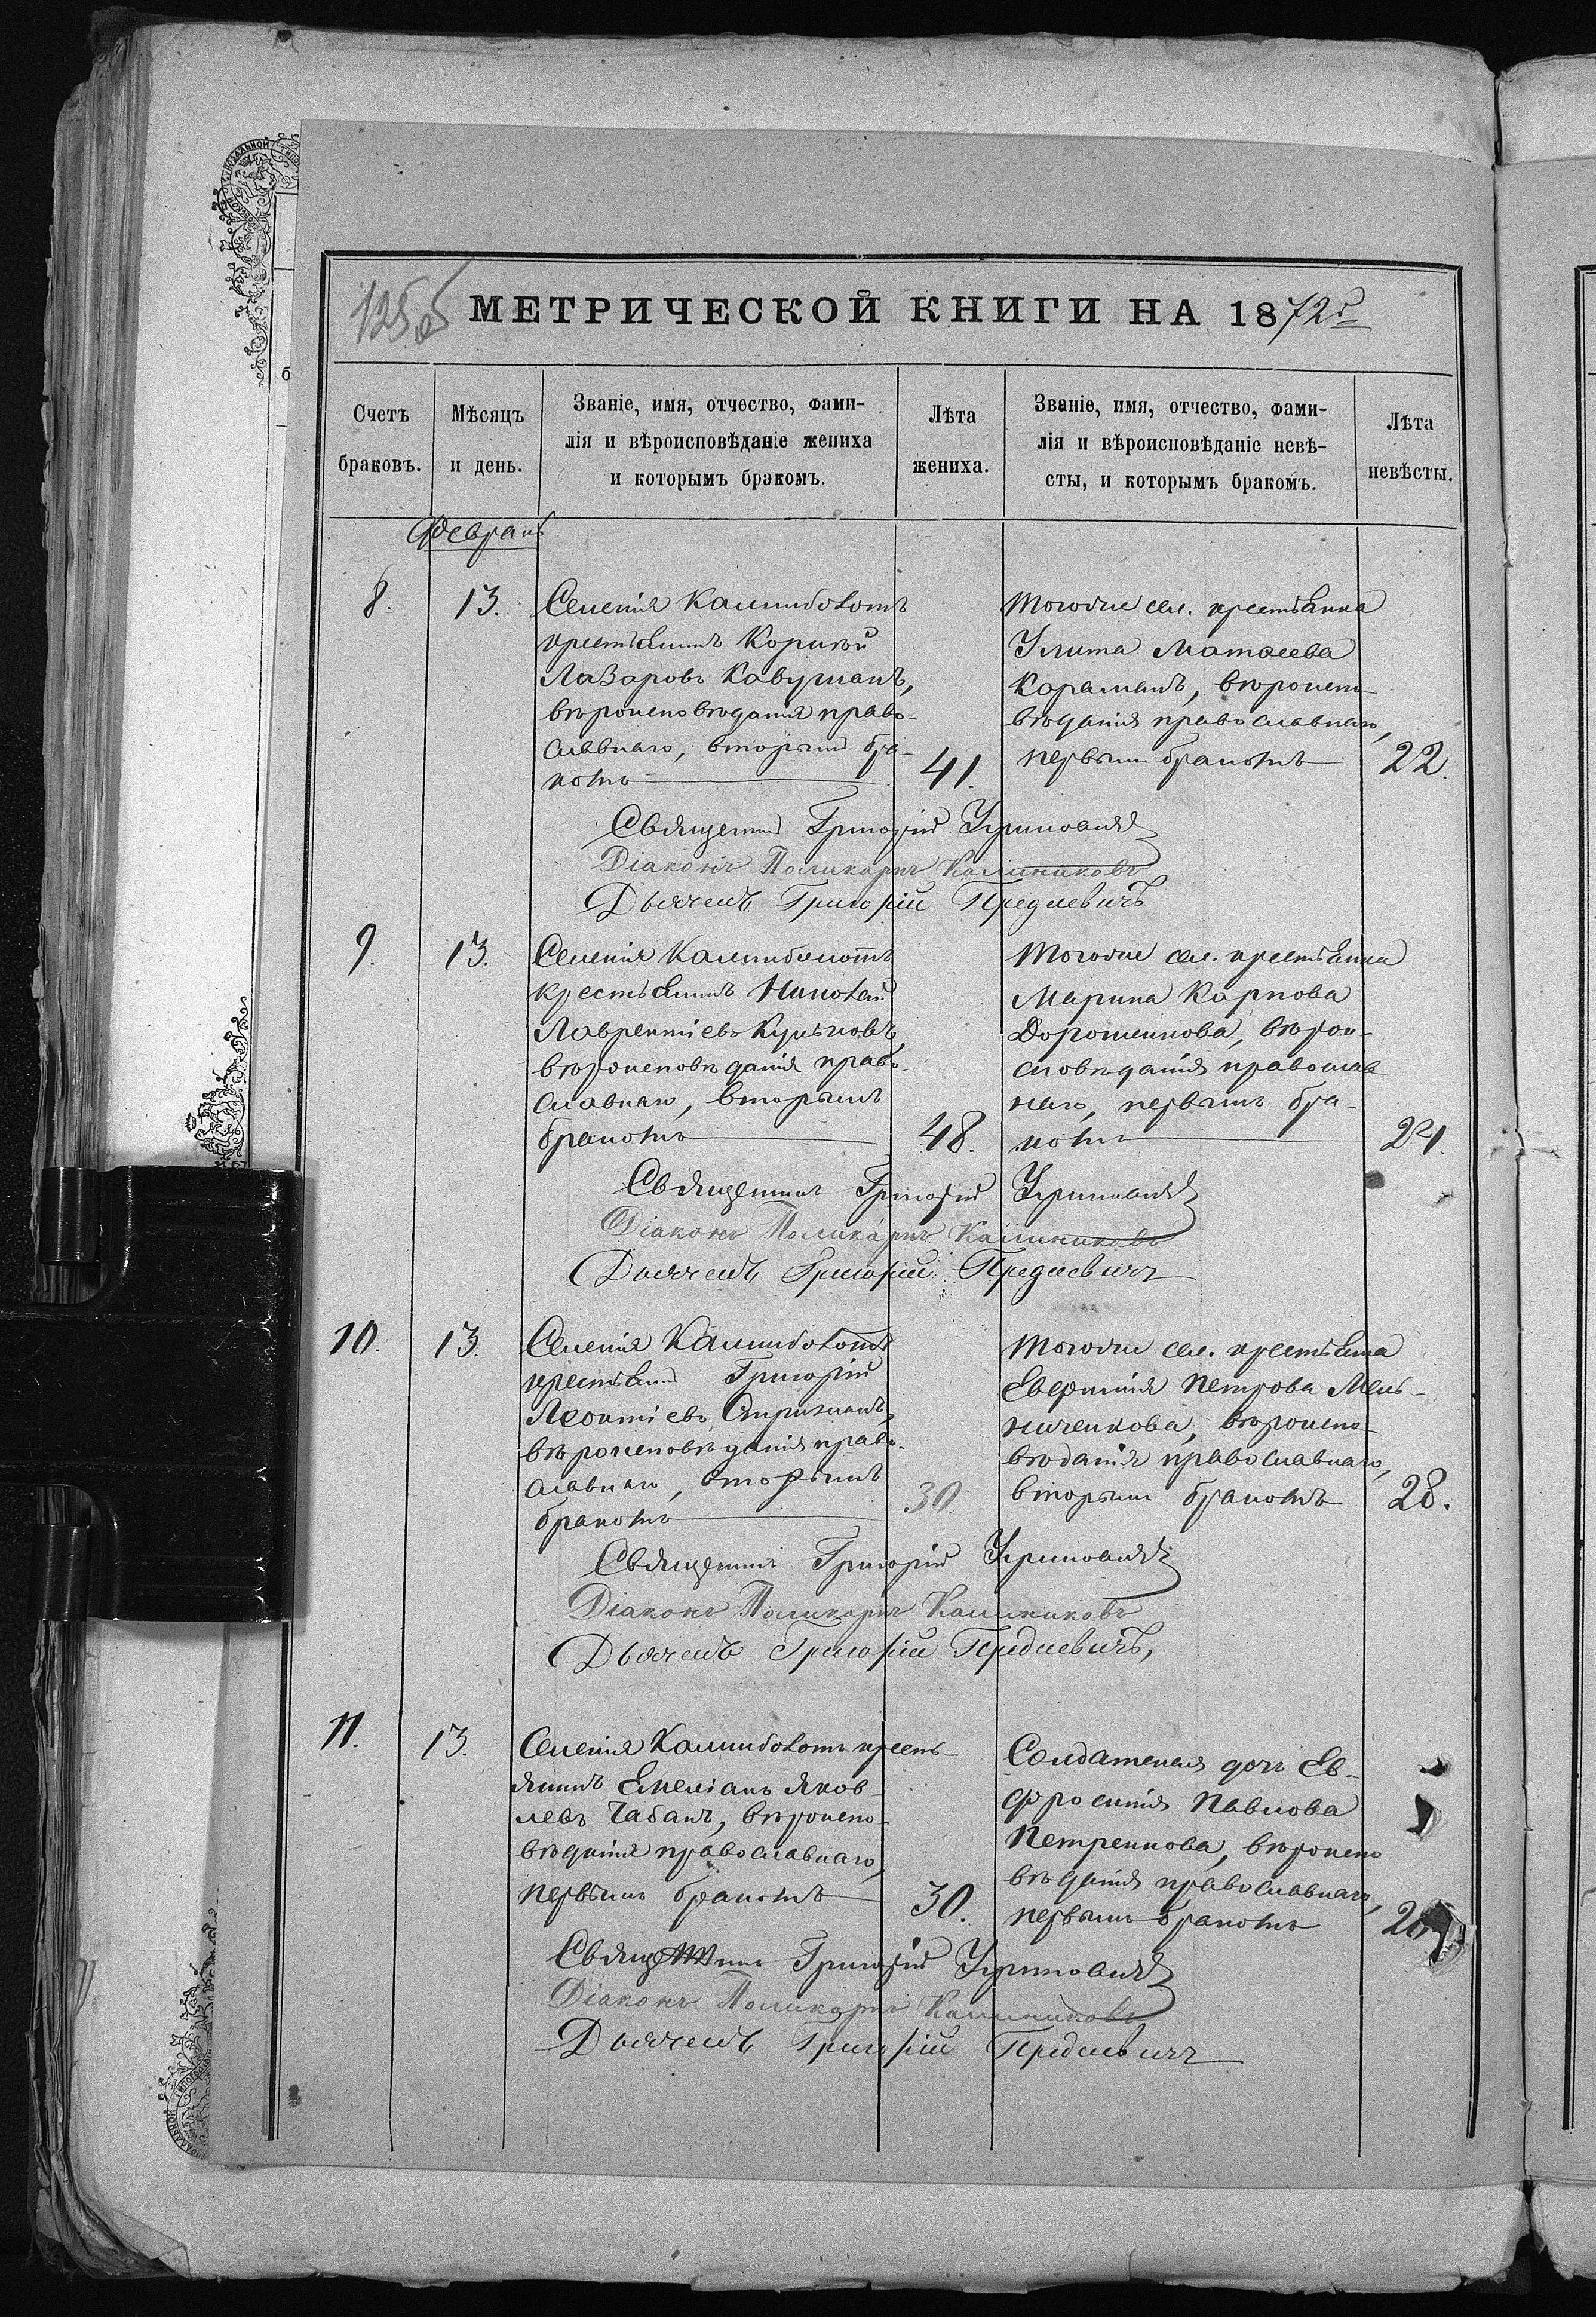 125 об
МЕТРИЧЕСКОЙ КНИГИ НА 1872 г.
Счетъ браковъ.
Мѣсяцъ и день.
Званіе, имя, отчество, фами-
лія и вѣроисповѣданіе жениха
и которымъ бракомъ.
Лѣта жениха.
Званіе, имя, отчество, фами-
лія и вѣроисповѣданіе невѣ-
сты, и которымъ бракомъ.
Лѣта невѣсты.
Февраль
8. 13.
Селенія Калниболотъ
крестьянинъ Корнѣй
Лазаровъ Кавунъ,
вѣроисповѣданія право-
славнаго, вторымъ бра-
комъ
41.
Тогоже сел. крестьянка
Улита Матѳеева
Караманъ, вѣроиспо-
вѣданія православнаго,
первымъ бракомъ
22.
Священникъ Григорій
Діаконъ Поликарпъ Калиниковъ
Дьячекъ Григорій
9. 13.
Селенія Калниболотъ
крестьянинъ Николай
Лаврентіевъ
вѣроисповѣданія право-
славнаго, вторымъ
бракомъ
48.
Тогоже сел. крестьянка
Марина Карпова
Дорошенкова, вѣрои-
сповѣданія православ
наго, первымъ бра-
комъ
24.
Священникъ Григорій
Діаконъ Поликарпъ Калиниковъ
Дьячекъ Григорій
10. 13.
Селенія Калниболотъ
крестьянинъ Григорій
Леонтіевъ
вѣроисповѣданія право-
славнаго, вторымъ
бракомъ
30.
Тогоже сел. крестьянка
Евфимія Петрова Мель-
ниченкова, вѣроиспо-
вѣданія православнаго,
вторымъ бракомъ
28.
Священникъ Григорій
Діаконъ Поликарпъ Калиниковъ
Дьячекъ Григорій
11. 13.
Селенія Калниболотъ кресть-
янинъ Емеліанъ Яков-
левъ Чабанъ, вѣроиспо-
вѣданія православнаго,
первымъ бракомъ
30.
Солдатская дочь Ев-
фросинія Павлова
Петренкова, вѣроиспо
вѣданія православнаго,
первымъ бракомъ
Священникъ Григорій
Діаконъ Поликарпъ Калиниковъ
Дьячекъ Григорій